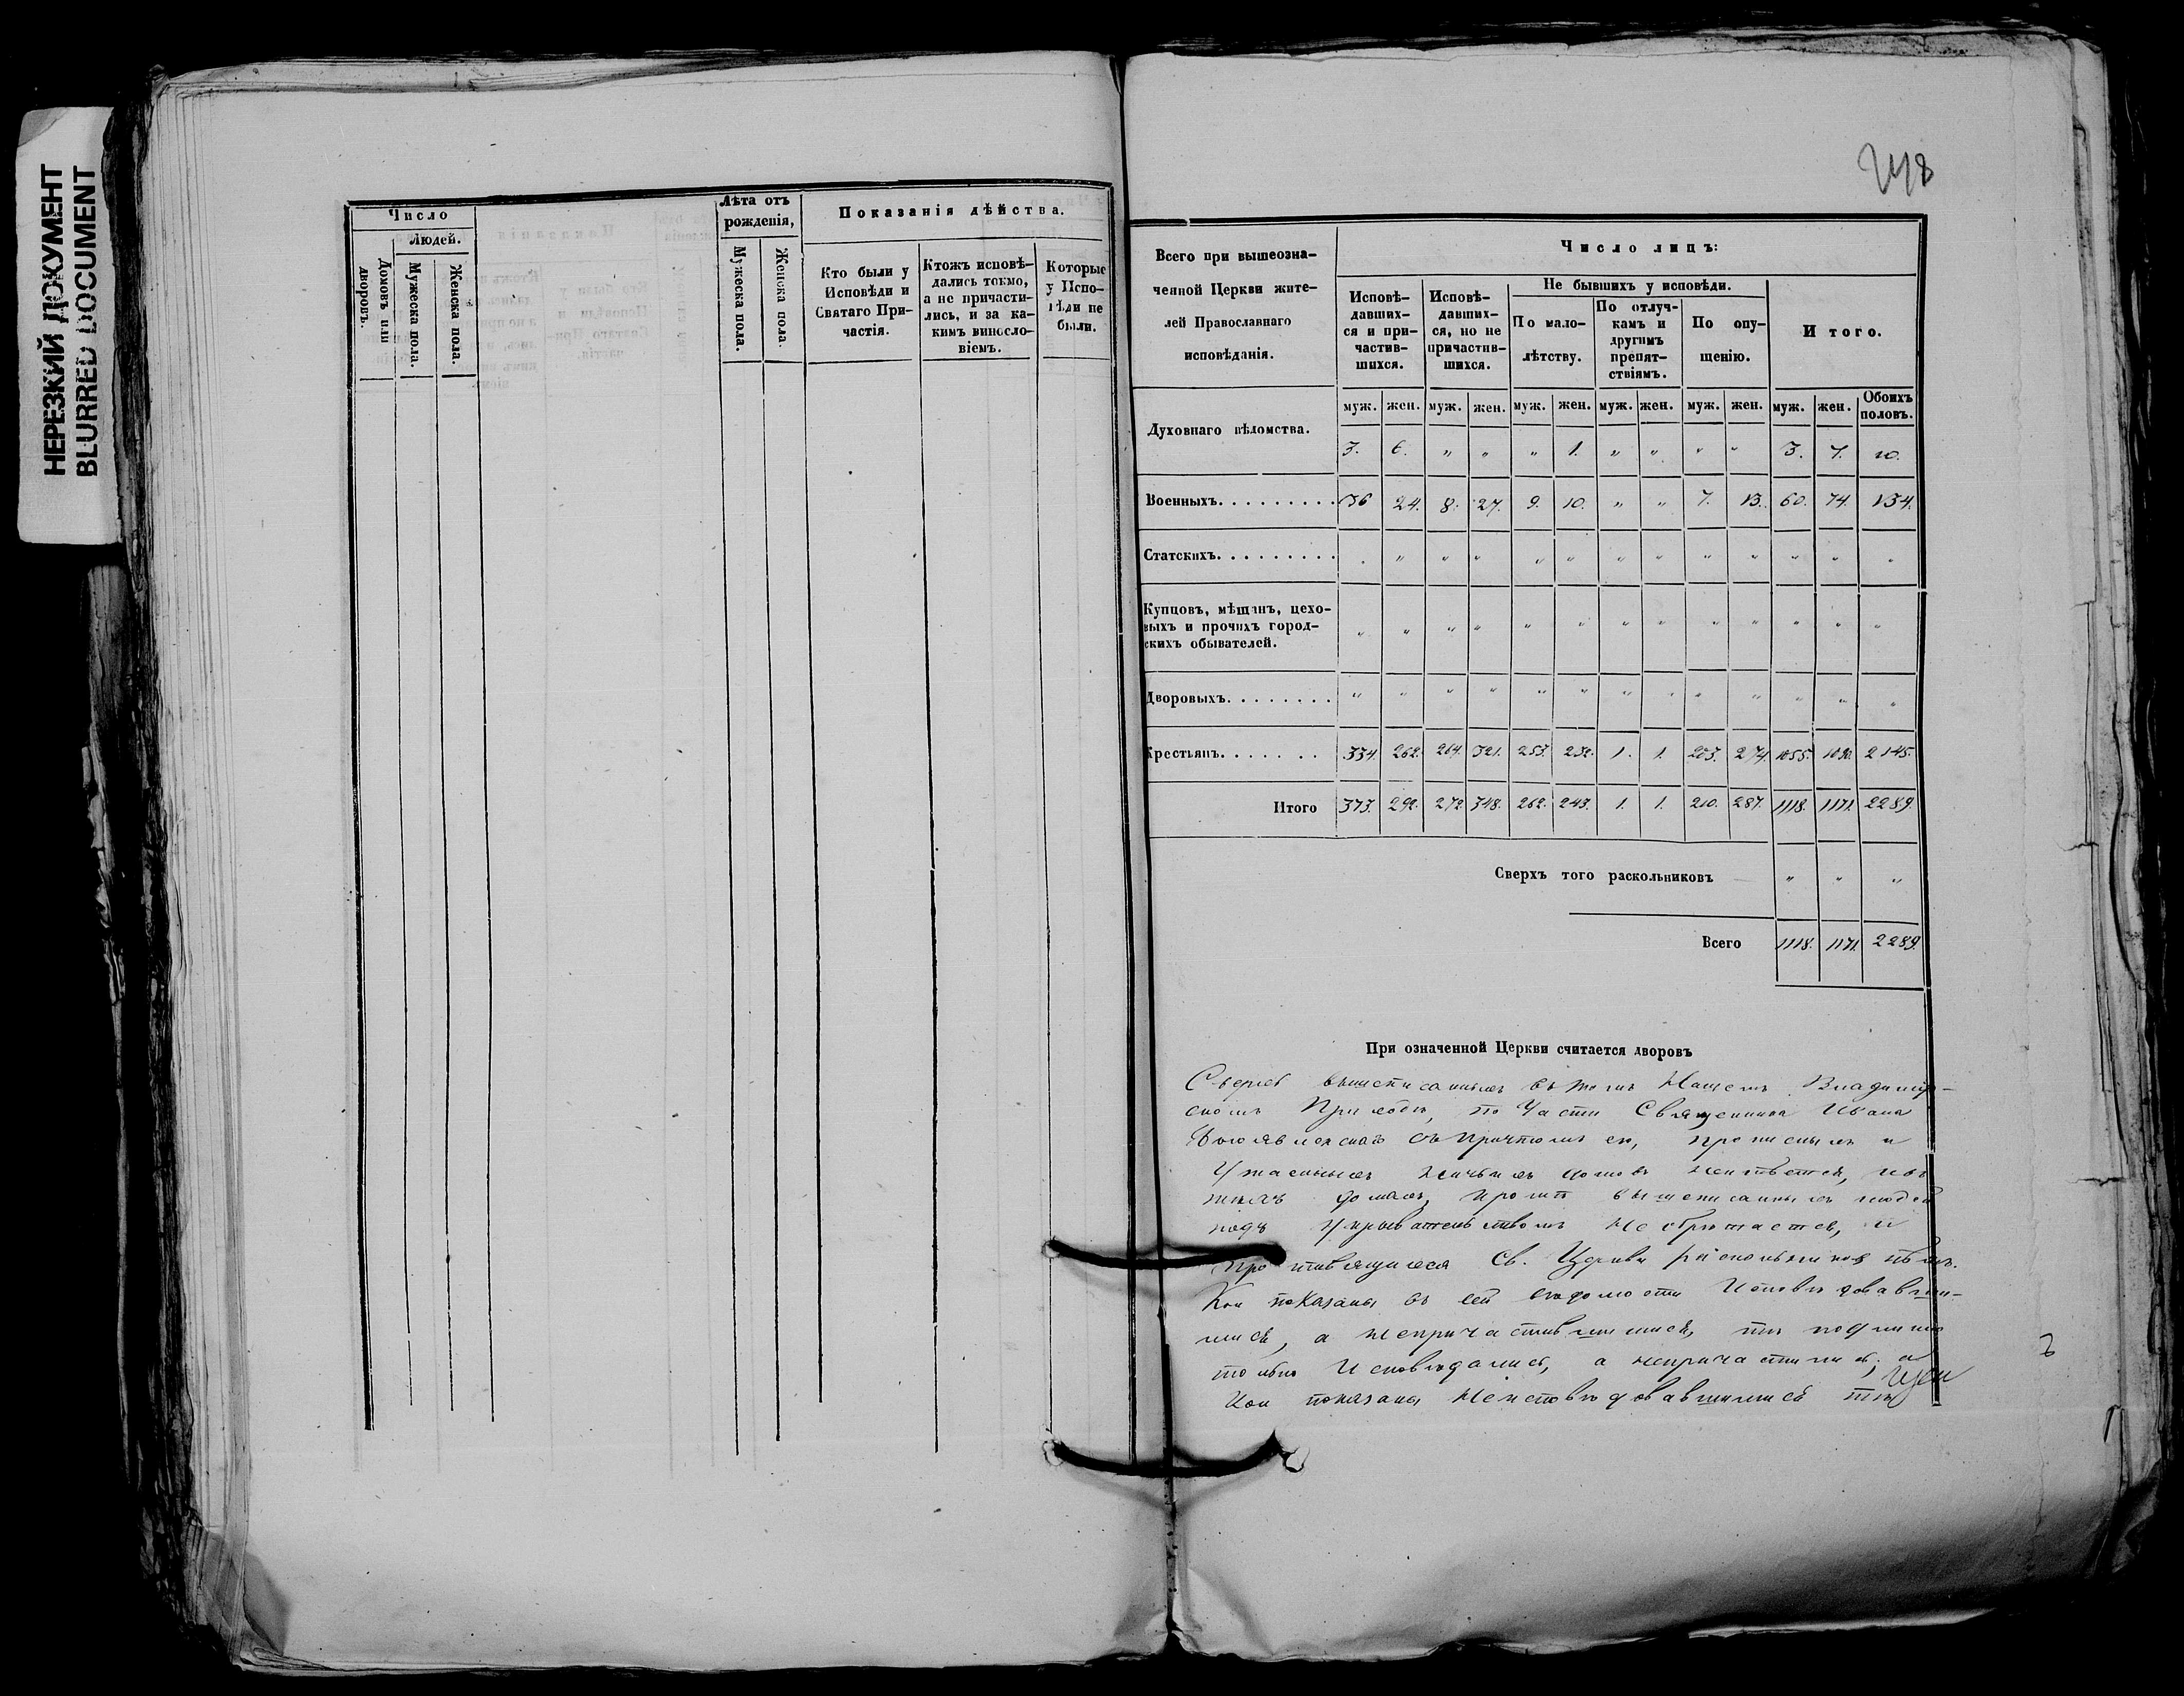 НЕРЕЗКИЙ ДОКУМЕНТ
BLURRED DOCUMENT
Число
Людей.
Домовъ или дворовъ.
Мужеска пола.
Женска пола.
Лѣта отъ рожденія,
Мужеска пола.
Женска пола.
Показанія дѣйства.
Кто были у Исповѣди и Святаго Причастія.
Ктожъ исповѣдались токмо, а не причастились, и за какимъ винословіемъ.
Которые у Исповѣди не были.
248
Всего при вышеозначенной Церкви жителей Православнаго исповѣданія.
Число лицъ:
Исповѣдавшихся и причастившихся.
Исповѣдавшихся, но не причастившихся.
Не бывшихъ у исповѣди.
По малолѣтству.
По отлучкамъ и другимъ препятствіямъ.
По опущенію.
Итого.
муж. жен. муж. жен. муж. жен. муж. жен. муж. жен. муж. жен. Обоихъ половъ.
Духовнаго вѣдомства. 3. 6. " " " 1. " " " " 3. 7. 10.
Военныхъ. 36 24. 8. 27. 9. 10. " " 7. 13. 60. 74. 134.
Статскихъ. " " " " " " " " " " " " "
Купцовъ, мѣщанъ, цеховыхъ и прочихъ городскихъ обывателей. " " " " " " " " " " " " "
Дворовыхъ. " " " " " " " " " " " " "
Крестьянъ. 334. 262. 264. 321. 253. 232. 1. 1. 203. 274. 1055. 1090. 2145.
Итого 373. 292. 272. 348. 262. 243. 1. 1. 210. 287. 1118. 1171. 2289.
Сверхъ того раскольниковъ " " "
Всего 1118. 1171. 2289.
При означенной Церкви считается дворовъ
Сверхъ вышеписанныхъ въ томъ Нашемъ Владимир-
скомъ Приходѣ, по Части Священника Ивана
Богоявленскаго съ причтомъ его,
домовъ
домахъ, кромѣ вышеписанныхъ людей
подъ укрывательствомъ не обрѣтается, и
противящихся Св. Церкви раскольниковъ нѣтъ.
Кои показаны въ сей вѣдомости Исповѣдовавши-
мися, а непричастившимися, тѣ
только Исповѣдались, а непричастились; а
Кои показаны Неисповѣдовавшимися тѣ